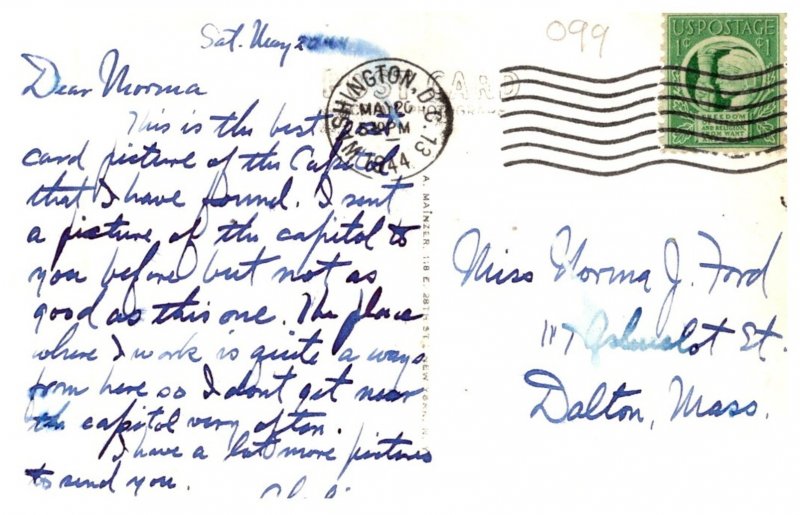 Sat. May 20
099
Dear Norma
This is the best post
card picture of the Capitol
that I have found. I sent
a picture of the capitol to
you before but not as
good as this one. The place
where I work is quite a ways
from here so I don't get near
the capitol very often.
I have a lot more pictures
to send you.
POST CARD
WASHINGTON, D.C. 13
MAY 20
5 30 PM
1944
U.S. POSTAGE
1¢ 1¢
FREEDOM
OF SPEECH
AND RELIGION,
FROM WANT
A. MAINZER, 118 E. 28TH ST., NEW YORK, N.Y.
Miss Norma J. Ford
117 St.
Dalton, Mass.